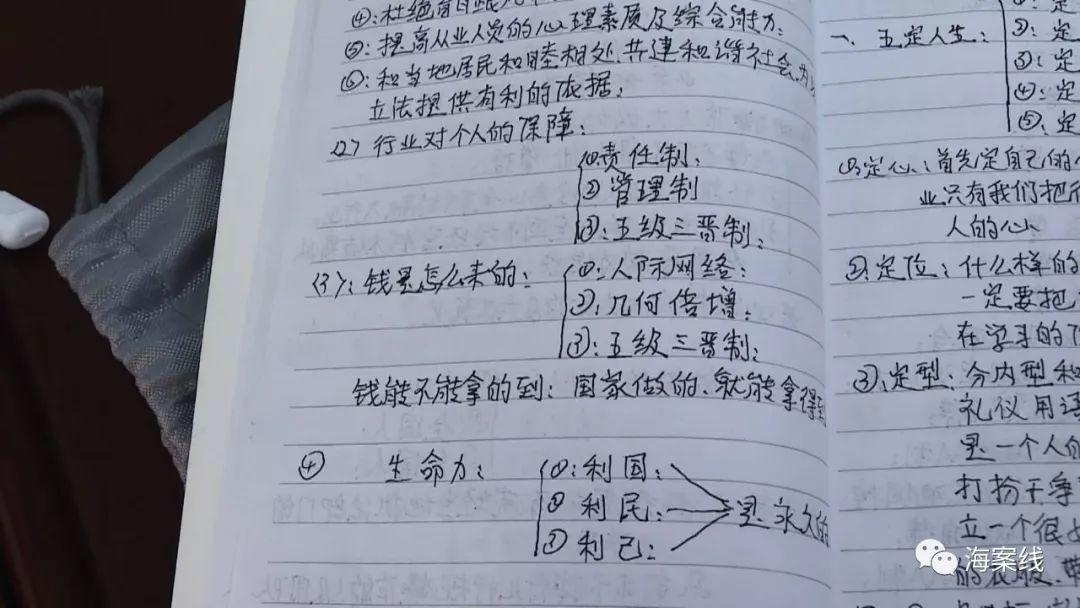 ④:杜绝盲目
⑤:提高从业人员的心理素质及综合能力;
⑥:和当地居民和睦相处.共建和谐社会,为
立法提供有利的依据;
(2)行业对个人的保障:
①责任制;
②管理制
③:五级三晋制;
(3):钱是怎么来的:
①:人际网络;
②:几何倍增;
③:五级三晋制;
钱能不能拿的到:国家做的.就能拿得到
④ 生命力:
①:利国;
②利民;
③利己;
是永久的
一、五定人生:
①:定
②:定
③:定
④:定
⑤:定
①定心:首先定自己的
业只有我们把
人的心
②定位:什么样的
一定要把
在学习的
③定型:分内型和
礼仪用语
是一个人的
打扮干净
立一个很
的衣服.带
海案线